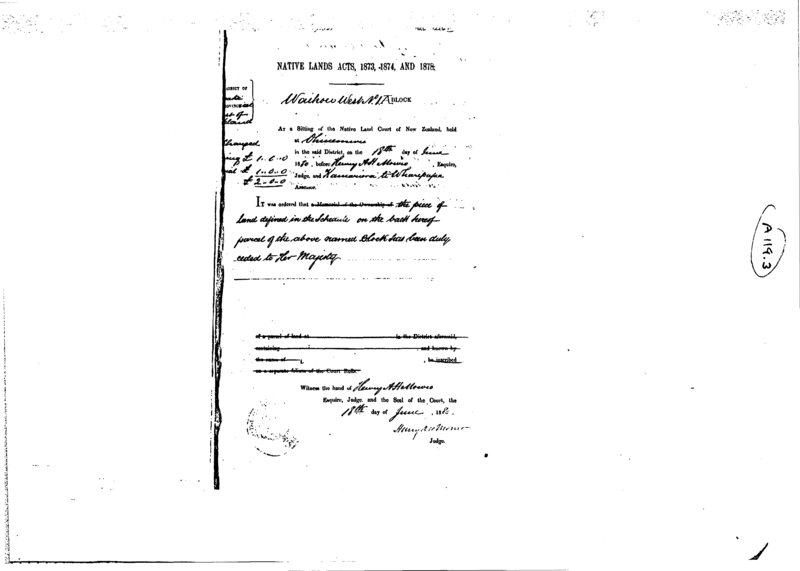 NATIVE LANDS ACTS, 1873, 1874, AND 1878.
Waihou West No 1A BLOCK
AT a Sitting of the Native Land Court of New Zealand, held
at
in the said District, on the 18th day of June
1880, before Henry A H Monro, Esquire,
Judge, and Kamariera te Wharepapa
Assessor.
charged
£ 1..0..0
£ 1..0..0
£ 2..0..0
IT was ordered that a Memorial of the Ownership of the piece of
land defined in the Schedule on the back hereof
parcel of the above named Block has been duly
ceded to Her Majesty
of a parcel of land at in the District aforesaid,
containing and known by
the name of , be inscribed
on a separate folium of the Court Rolls.
Witness the hand of Henry A H Monro
Esquire, Judge, and the Seal of the Court, the
18th day of June, 1880.
Henry A H Monro
Judge.
A 119.3